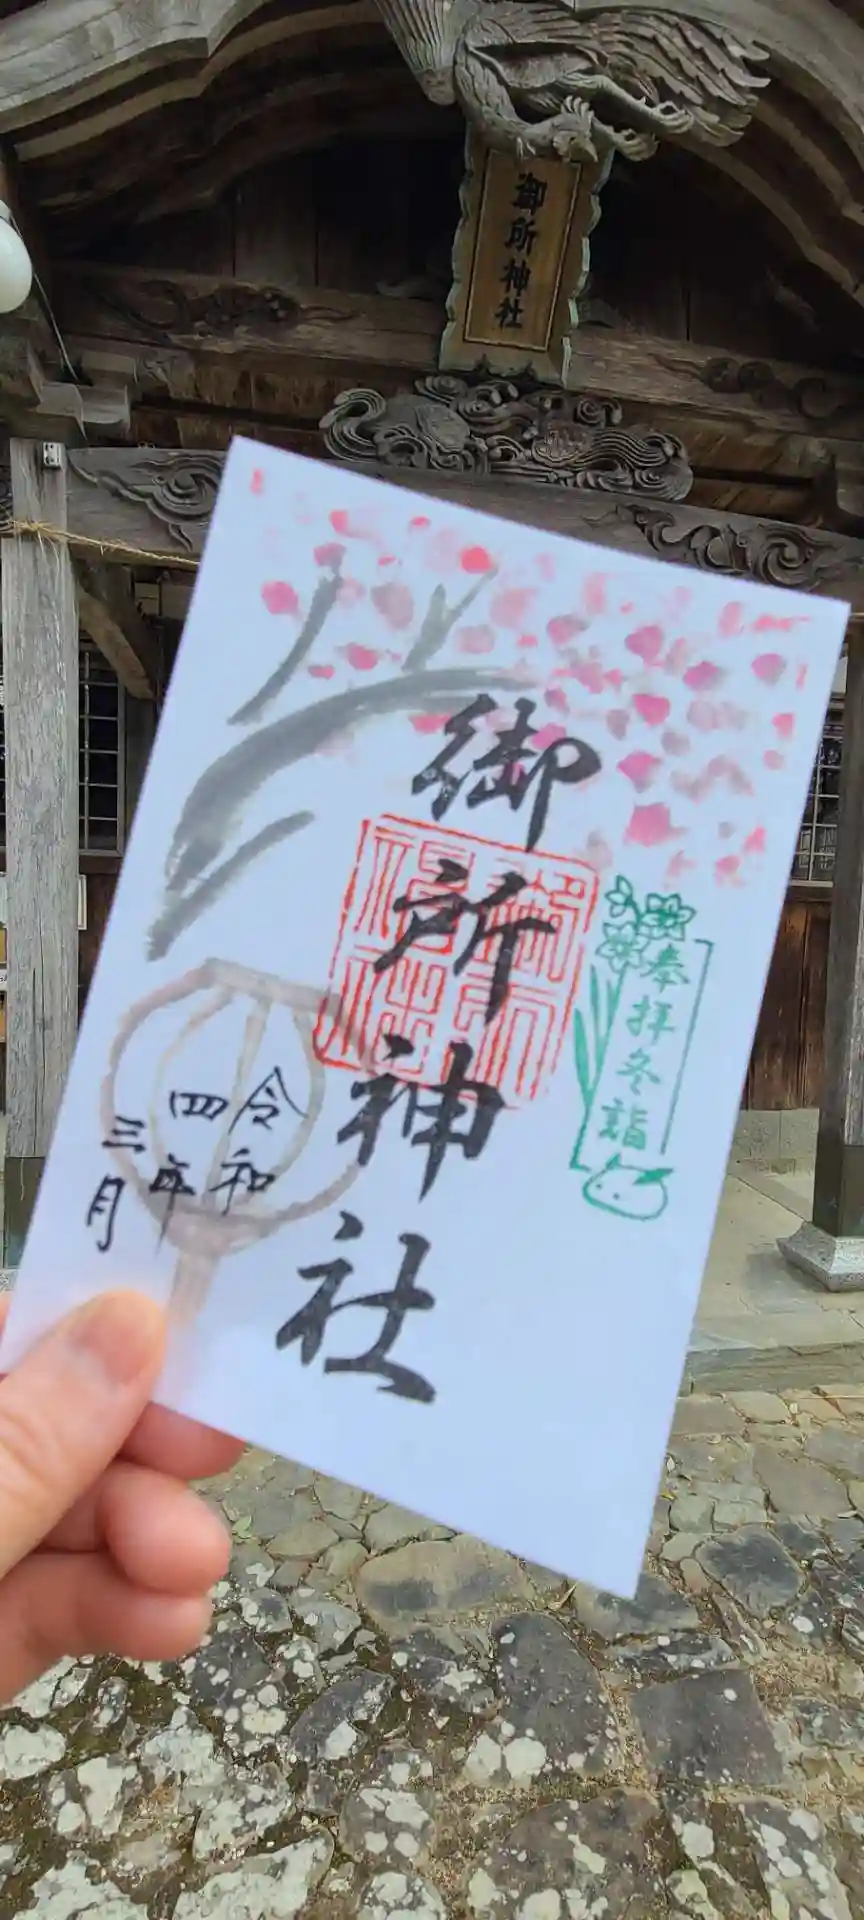 御所神社
奉拝冬詣
御所神社
令和
四年
三月